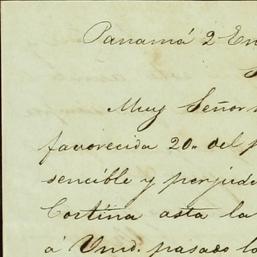 Panamá 2 En
Muy Señor
favorecida 20. del p
sencible y perjude
Cortina asta la
á Vmd. pasado la